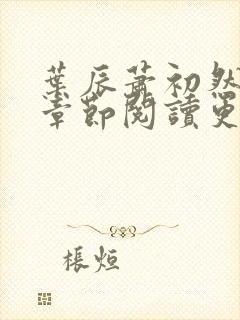 葉辰蕭初然
章節閱讀更
悵烜